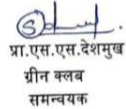 प्रा.एस.एस.देशमुख
ग्रीन क्लब
समन्वयक